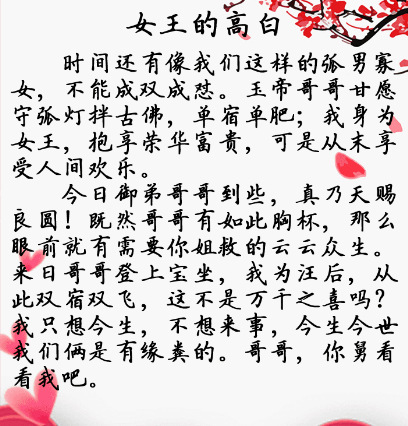 女王的高白
时间还有像我们这样的弧男寡
女，不能成双成怼。玉帝哥哥甘愿
守孤灯拌古佛，单宿单肥；我身为
女王，抱享荣华富贵，可是从末享
受人间欢乐。
今日御弟哥哥到些，真乃天赐
良圆！既然哥哥有如此胸杯，那么
眼前就有需要你姐救的云云众生。
来日哥哥登上宝坐，我为汪后，从
此双宿双飞，这不是万千之喜吗？
我只想今生，不想来事，今生今世
我们俩是有缘粪的。哥哥，你舅看
看我吧。